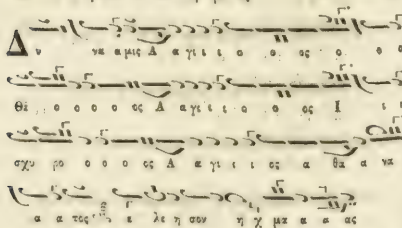 Δ υ να α μις Α α γι ι ι ο ο ος ο ο ο
θε ο ο ο ο ος Α α γι ι ι ο ο ος Ι ι ι
σχυ ρο ο ο ο ος Α α γι ι ι ος α θα α να
α α τος ε λε η σον η χ μα α α ας